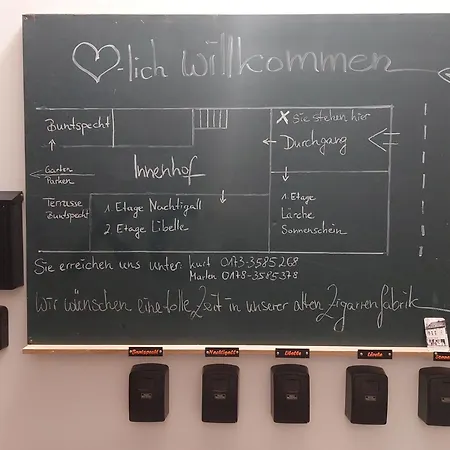 -lich willkommen
Buntspecht
X Sie stehen hier
Durchgang
Innenhof
Garten
Parken
Terrasse
Buntspecht
1. Etage Nachtigall
2. Etage Libelle
1. Etage
Lärche
Sonnenschein
Sie erreichen uns unter Kurt 0173-3585268
Marlen 0178-3585378
Wir wünschen eine tolle Zeit in unserer alten Zigarrenfabrik
Buntspecht
Nachtigall
Libelle
Lärche